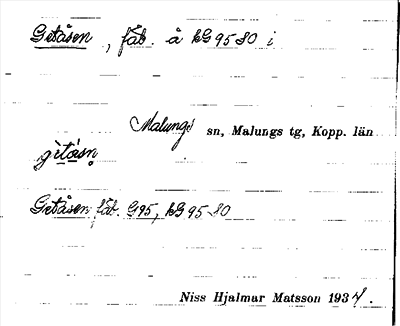 Getåsen, fäb. å kG 95 80 i
Malungs sn, Malungs tg, Kopp. län
Getåsen, fäb. G95, kG 95 80
Niss Hjalmar Matsson 1934.